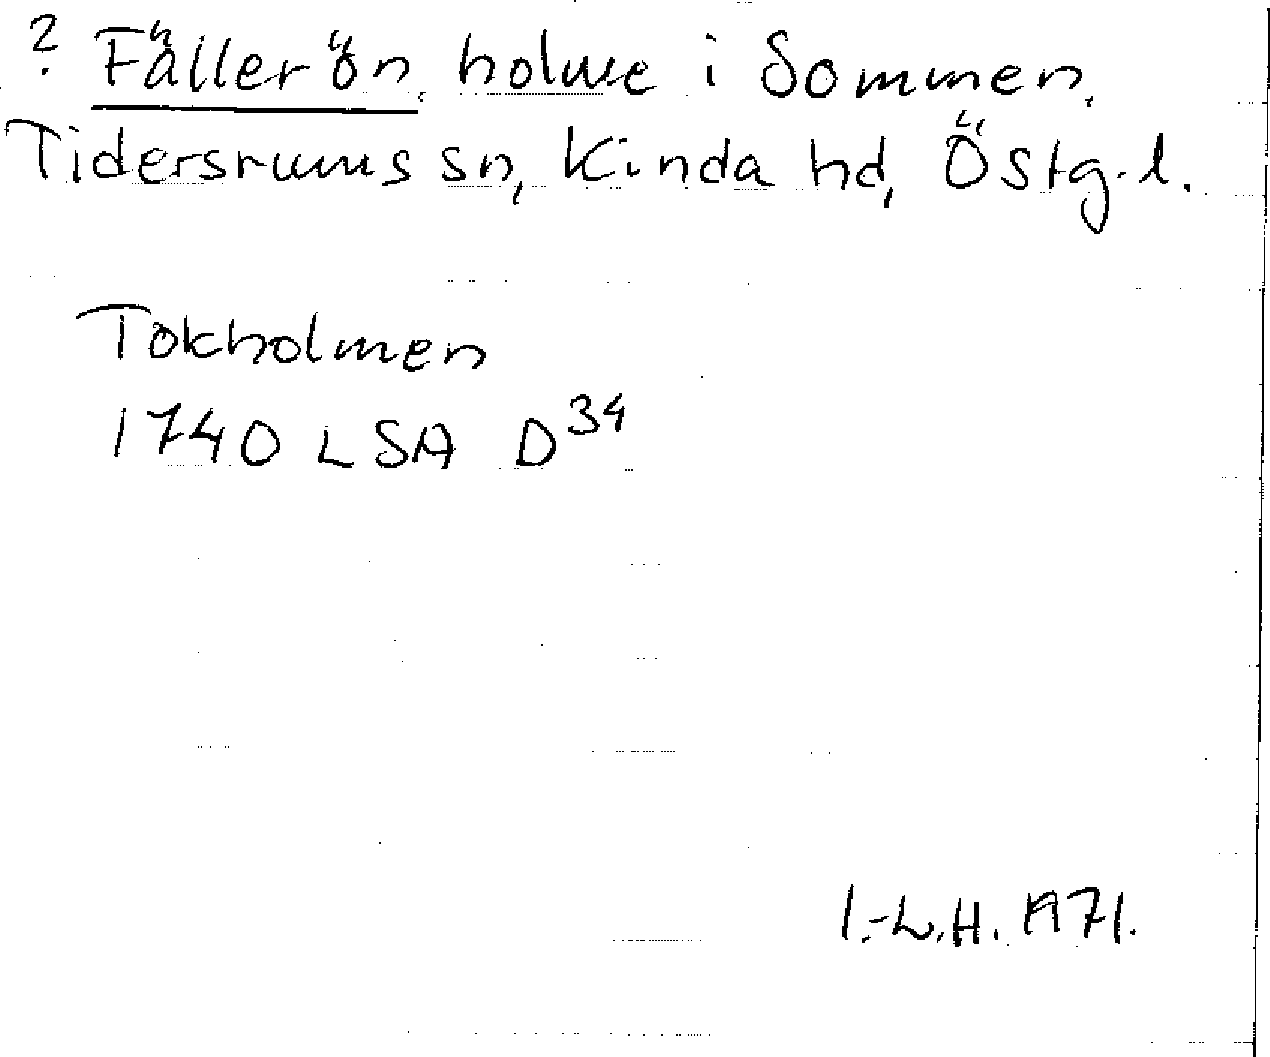 ? Fälleröm, holme i Sommen,
Tidersrums sn, Kinda hd, Östg.l.
Tokholmen
1740 LSA D³⁴
I.-L.H. 1971.